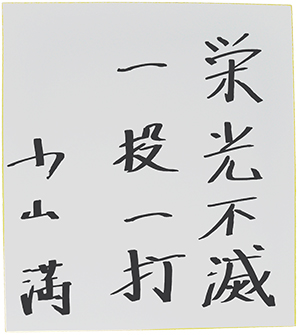 栄光不滅
一投一打
小山満